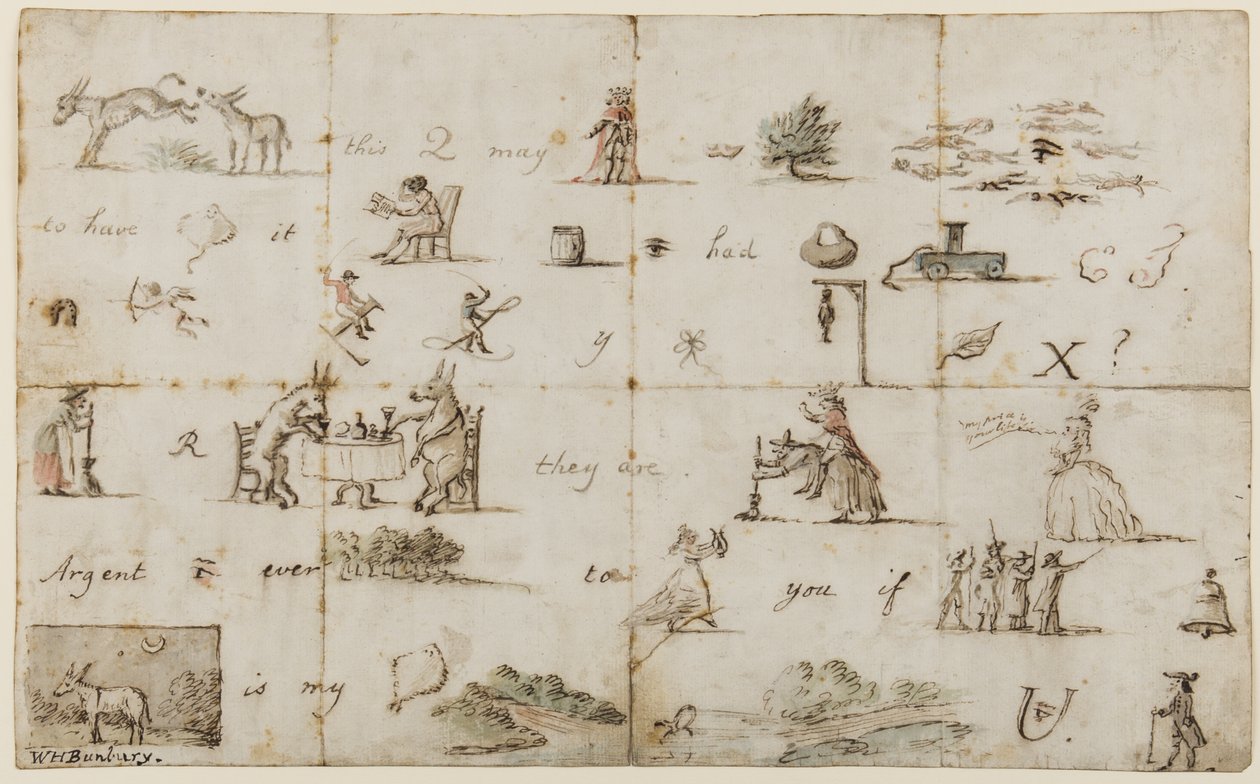 this 2 may
to have it had
y X ?
R they are.
my price is
your life
Argent ever to you if
is my U.
WHBunbury.